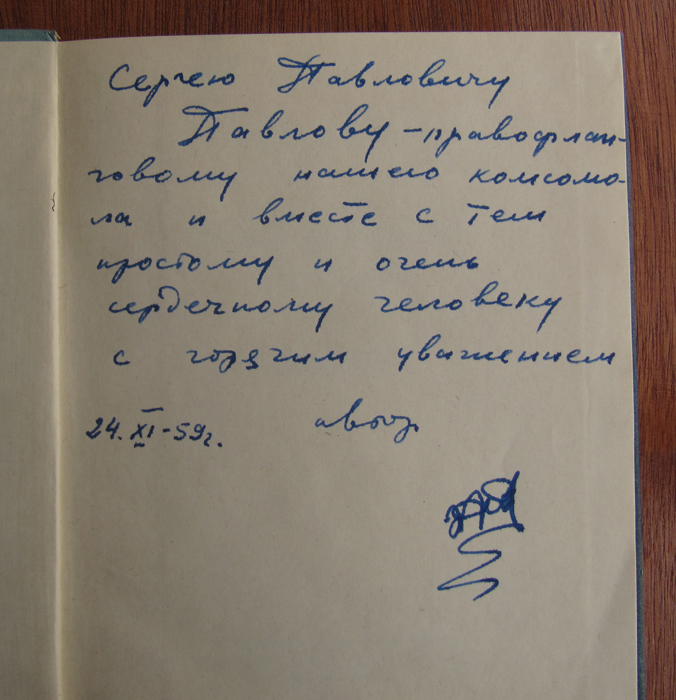 Сергею Павловичу
Павлову – правофлан-
говому нашего комсомо-
ла и вместе с тем
простому и очень
сердечному человеку
с горячим уважением
автор
24.XI-59г.